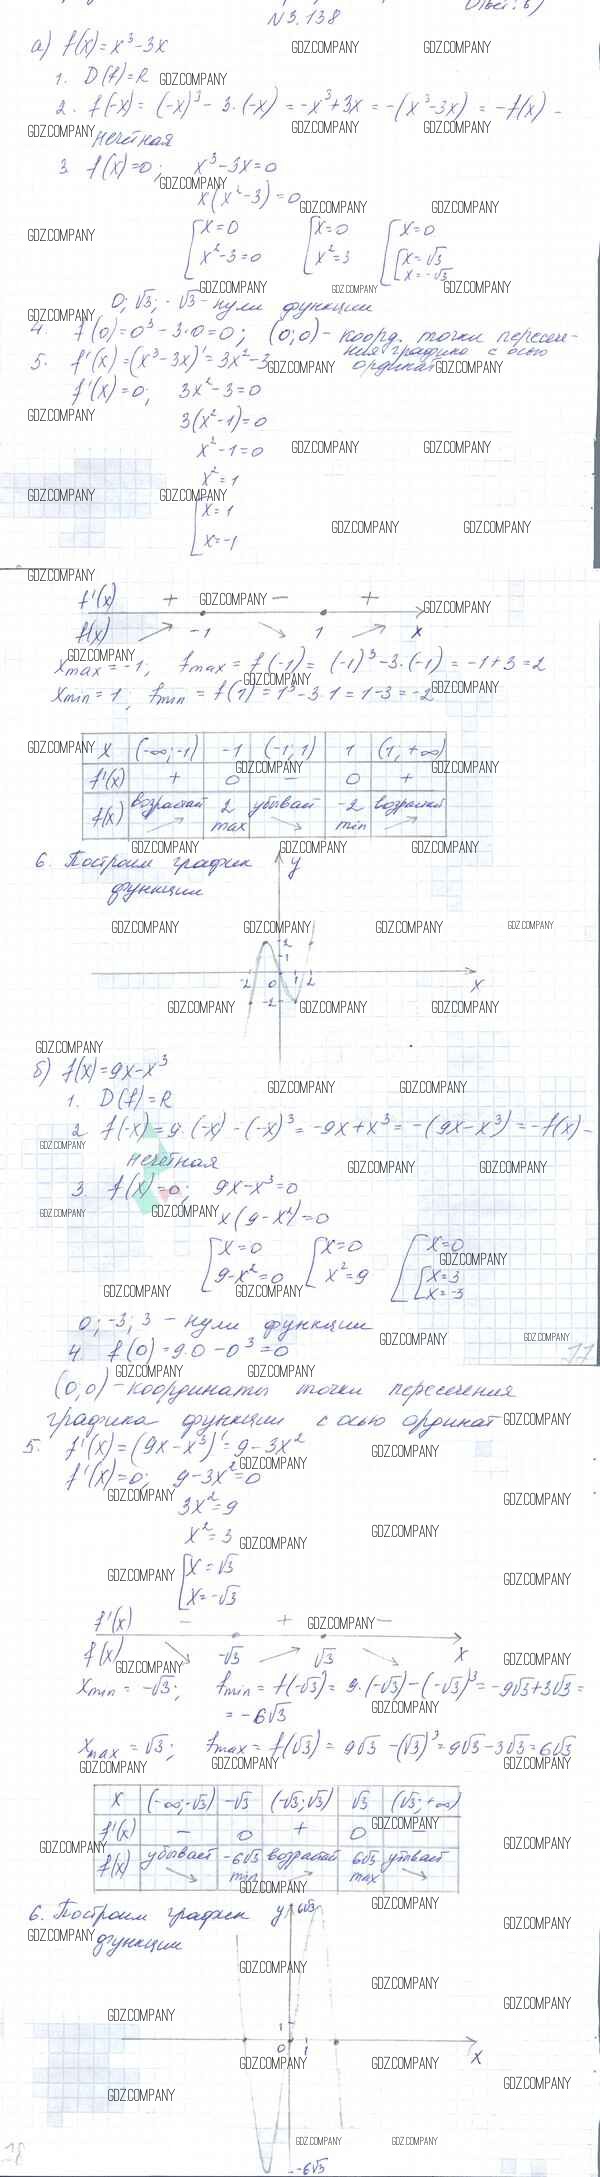 Ответ: б)
N3.138
а) f(x)=x³-3x
1. D(f)=R
2. f(-x)=(-x)³-3·(-x)=-x³+3x=-(x³-3x)=-f(x)-
нечётная
3. f(x)=0; x³-3x=0
x(x²-3)=0
[x=0 [x=0 [x=0
[x²-3=0 [x²=3 [[x=√3
x=-√3
0; √3; -√3 - нули функции
4. f(0)=0³-3·0=0; (0;0)- коорд. точки пересече-
ния графика с осью
ординат
5. f'(x)=(x³-3x)'=3x²-3
f'(x)=0; 3x²-3=0
3(x²-1)=0
x²-1=0
x²=1
[x=1
[x=-1
f'(x) + - +
f(x) -1 1 x
xmax=-1; fmax=f(-1)=(-1)³-3·(-1)=-1+3=2
xmin=1; fmin=f(1)=1³-3·1=1-3=-2
x (-∞;-1) -1 (-1;1) 1 (1;+∞)
f'(x) + 0 - 0 +
f(x) возрастает 2 max убывает -2 min возрастает
6. Построим график
функции
y
2
1
-2 0 1 2 x
-2
б) f(x)=9x-x³
1. D(f)=R
2. f(-x)=9·(-x)-(-x)³=-9x+x³=-(9x-x³)=-f(x)-
нечётная
3. f(x)=0; 9x-x³=0
x(9-x²)=0
[x=0 [x=0 [x=0
[9-x²=0 [x²=9 [[x=3
x=-3
0; -3; 3 - нули функции
4. f(0)=9·0-0³=0
77
(0;0)- координаты точки пересечения
графика функции с осью ординат
5. f'(x)=(9x-x³)'=9-3x²
f'(x)=0; 9-3x²=0
3x²=9
x²=3
[x=√3
[x=-√3
f'(x) - + -
f(x) -√3 √3 x
xmin=-√3; fmin=f(-√3)=9·(-√3)-(-√3)³=-9√3+3√3=
=-6√3
xmax=√3; fmax=f(√3)=9√3-(√3)³=9√3-3√3=6√3
x (-∞;-√3) -√3 (-√3;√3) √3 (√3;+∞)
f'(x) - 0 + 0 -
f(x) убывает -6√3 min возрастает 6√3 max убывает
6. Построим график
функции
y 6√3
1
0 1 x
-6√3
GDZ.COMPANY